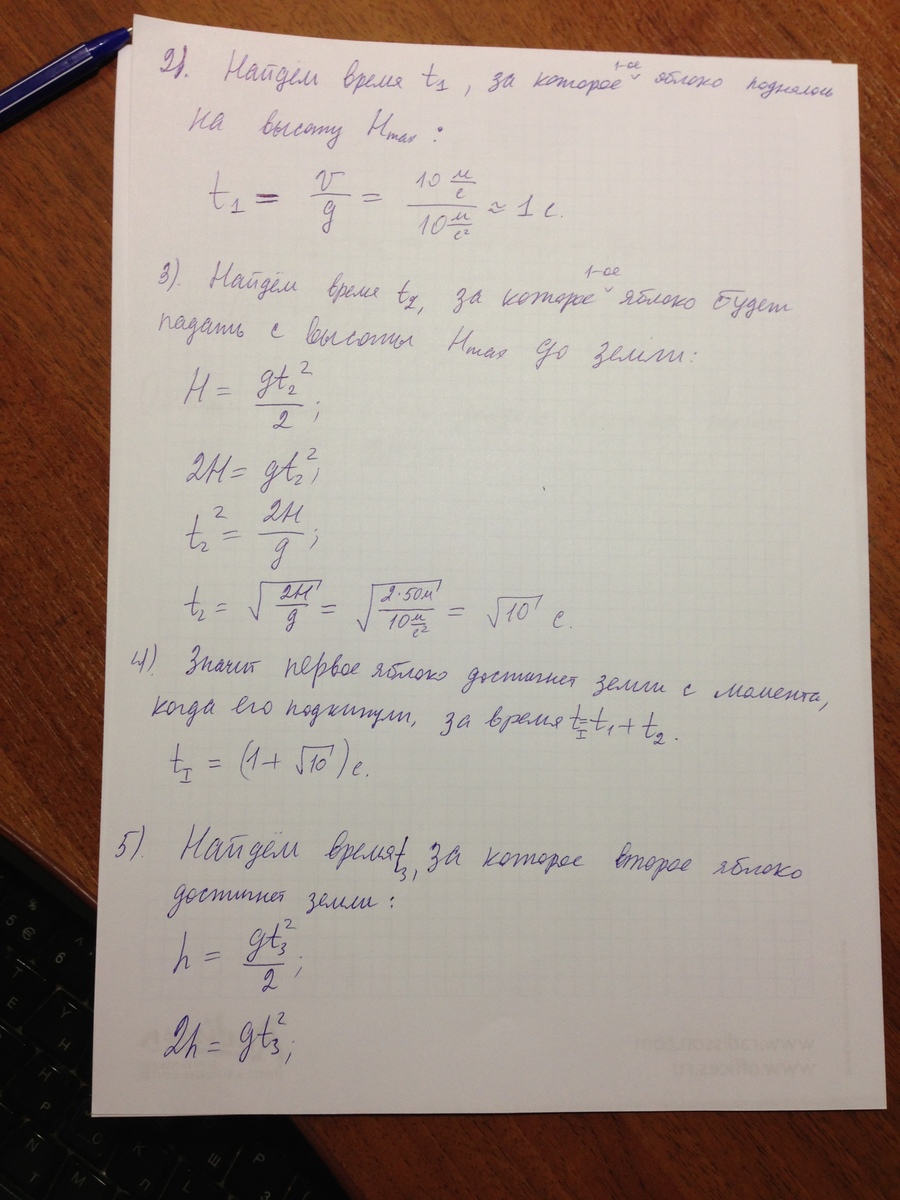 2). Найдём время t₁, за которое 1-ое яблоко поднялось
на высоту Hmax:
t₁ = v/g = 10 м/с / 10 м/с² ≈ 1 с.
3). Найдём время t₂, за которое 1-ое яблоко будет
падать с высоты Hmax до земли:
H = gt₂²/2;
2H = gt₂²;
t₂² = 2H/g;
t₂ = √(2H/g) = √(2·50м/10 м/с²) = √10 с.
4). Значит первое яблоко достигнет земли с момента,
когда его подкинули, за время t_I = t₁ + t₂.
t_I = (1 + √10) с.
5). Найдём время t₃, за которое второе яблоко
достигнет земли:
h = gt₃²/2;
2h = gt₃²;
www.radisson.com
www.offices.ru